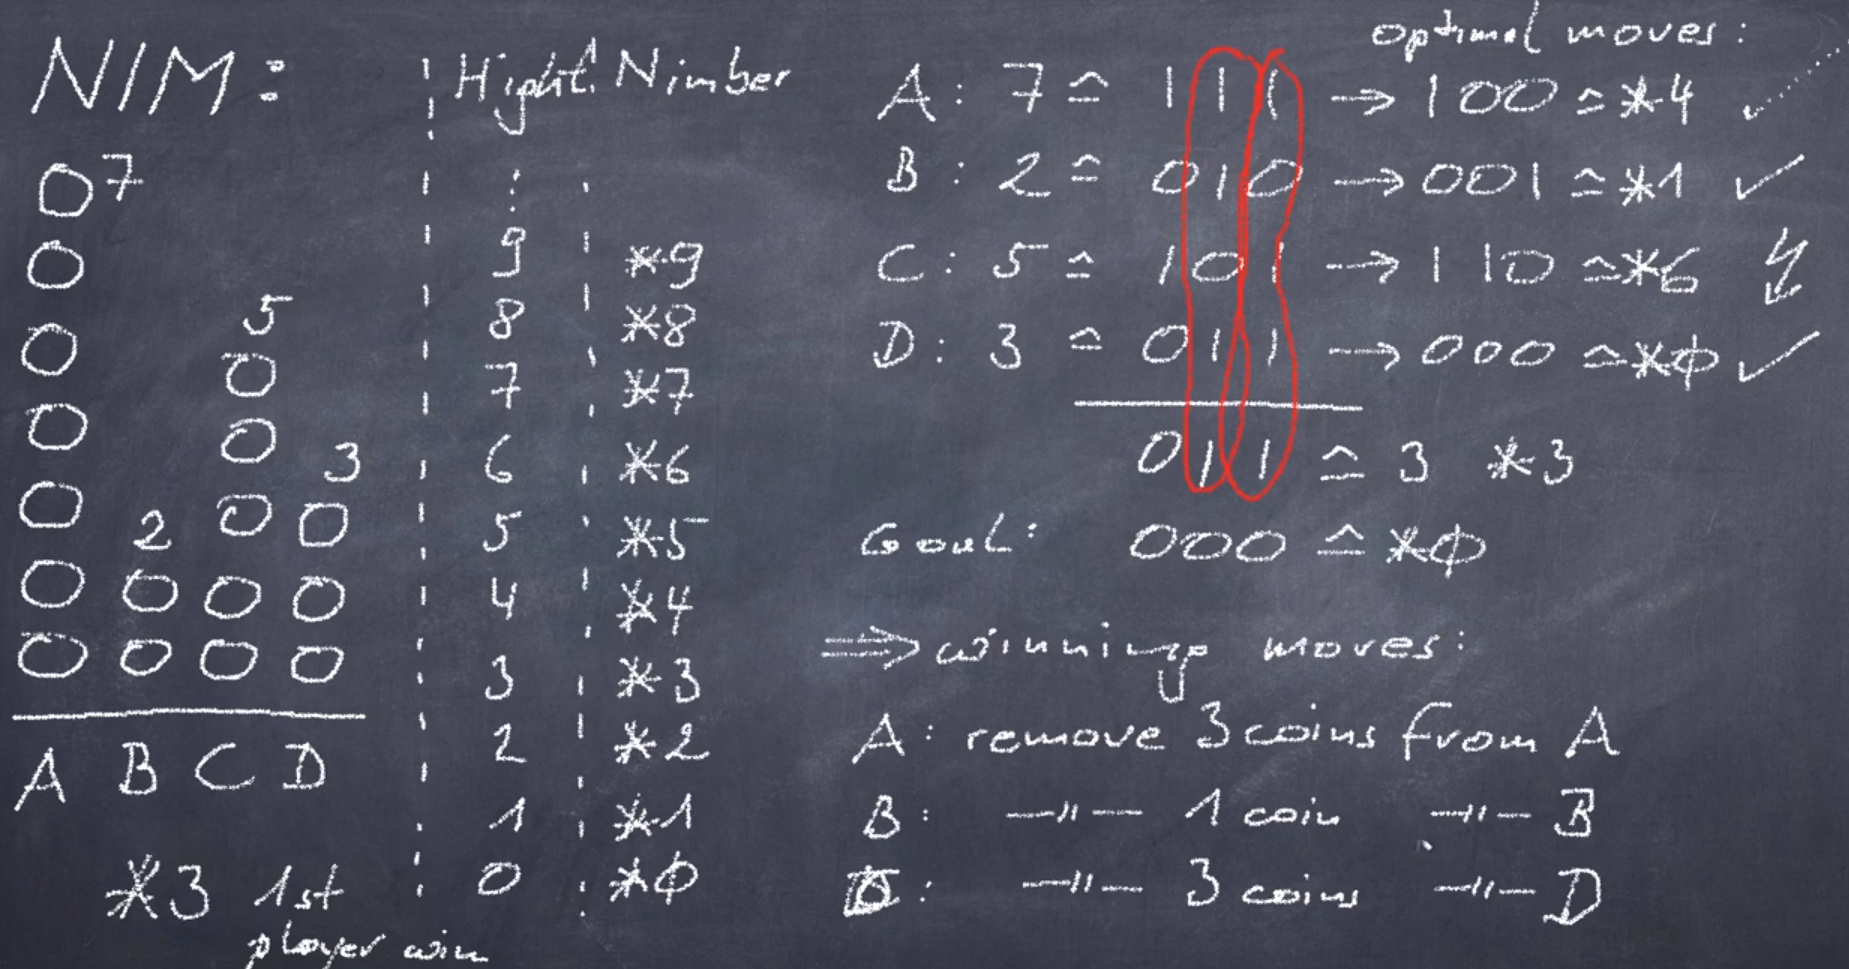 NIM:
7
5
3
2
A B C D
*3 1st
player win
Hight Nimber
⋮
9 *9
8 *8
7 *7
6 *6
5 *5
4 *4
3 *3
2 *2
1 *1
0 *0
optimal moves:
A: 7 ≙ 111 → 100 ≙ *4 ✓
B: 2 ≙ 010 → 001 ≙ *1 ✓
C: 5 ≙ 101 → 110 ≙ *6 ↯
D: 3 ≙ 011 → 000 ≙ *0 ✓
011 ≙ 3 *3
Goal: 000 ≙ *0
⇒ winning moves:
A: remove 3 coins from A
B: —"— 1 coin —"— B
D: —"— 3 coins —"— D